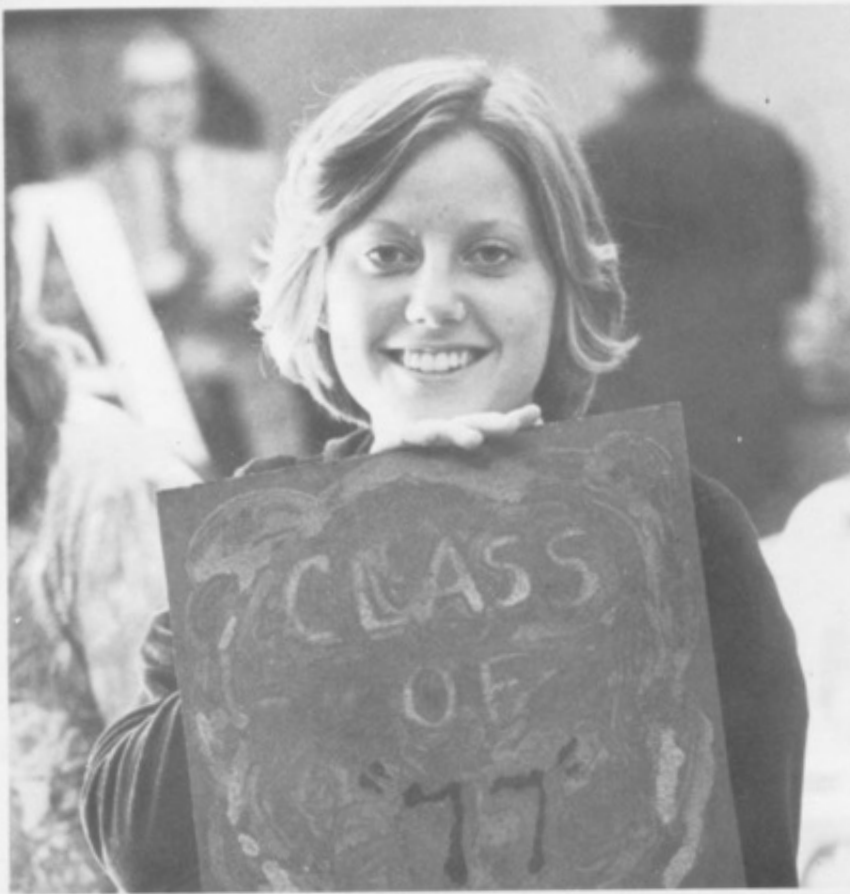 CLASS
OF
"77"